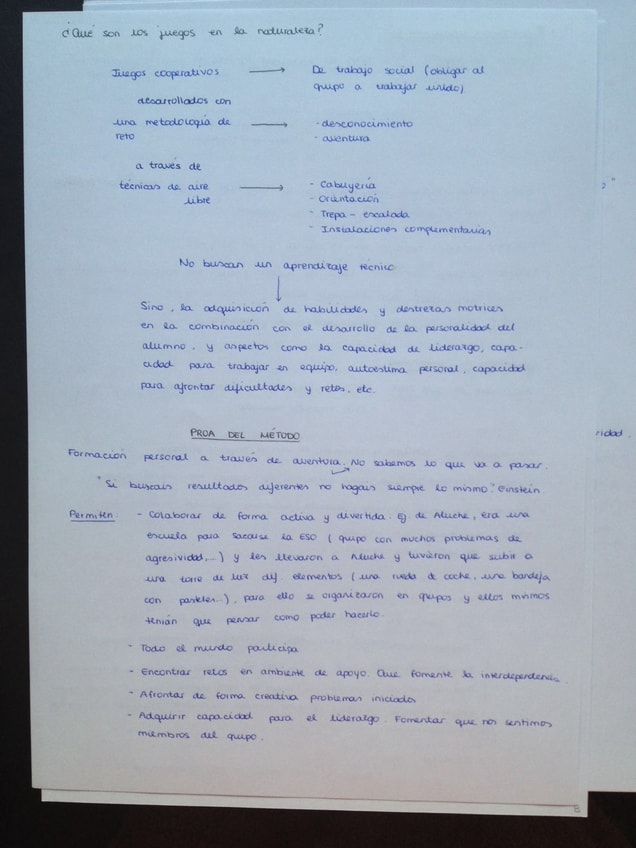 ¿Qué son los juegos en la naturaleza?
Juegos cooperativos → De trabajo social (obligar al
grupo a trabajar unido)
desarrollados con
una metodología de → - desconocimiento
reto - aventura
a través de
técnicas de aire → - Cabuyería
libre - Orientación
- Trepa - escalada
- Instalaciones complementarias
No buscan un aprendizaje técnico
↓
Sino, la adquisición de habilidades y destrezas motrices
en la combinación con el desarrollo de la personalidad del
alumno, y aspectos como la capacidad de liderargo, capa-
cidad para trabajar en equipo, autoestima personal, capacidad
para afrontar dificultades y retos, etc.
PROA DEL MÉTODO
Formación personal a través de aventura. No sabemos lo que va a pasar.
"Si buscais resultados diferentes no hagais siempre lo mismo". Einstein
Permiten: - Colaborar de forma activa y divertida. Ej. de Aluche, era una
escuela para sacarse la ESO (grupo con muchos problemas de
agresividad,...) y les llevaron a Aluche y tuvieron que subir a
una torre de luz dif. elementos (una rueda de coche, una bandeja
con pasteles...), para ello se organizaron en grupos y ellos mismos
tenían que pensar como poder hacerlo.
- Todo el mundo participa
- Encontrar retos en ambiente de apoyo. Que fomente la interdependencia.
- Afrontar de forma creativa problemas iniciados
- Adquirir capacidad para el lideralgo. Fomentar que nos sentimos
miembros del grupo.
8